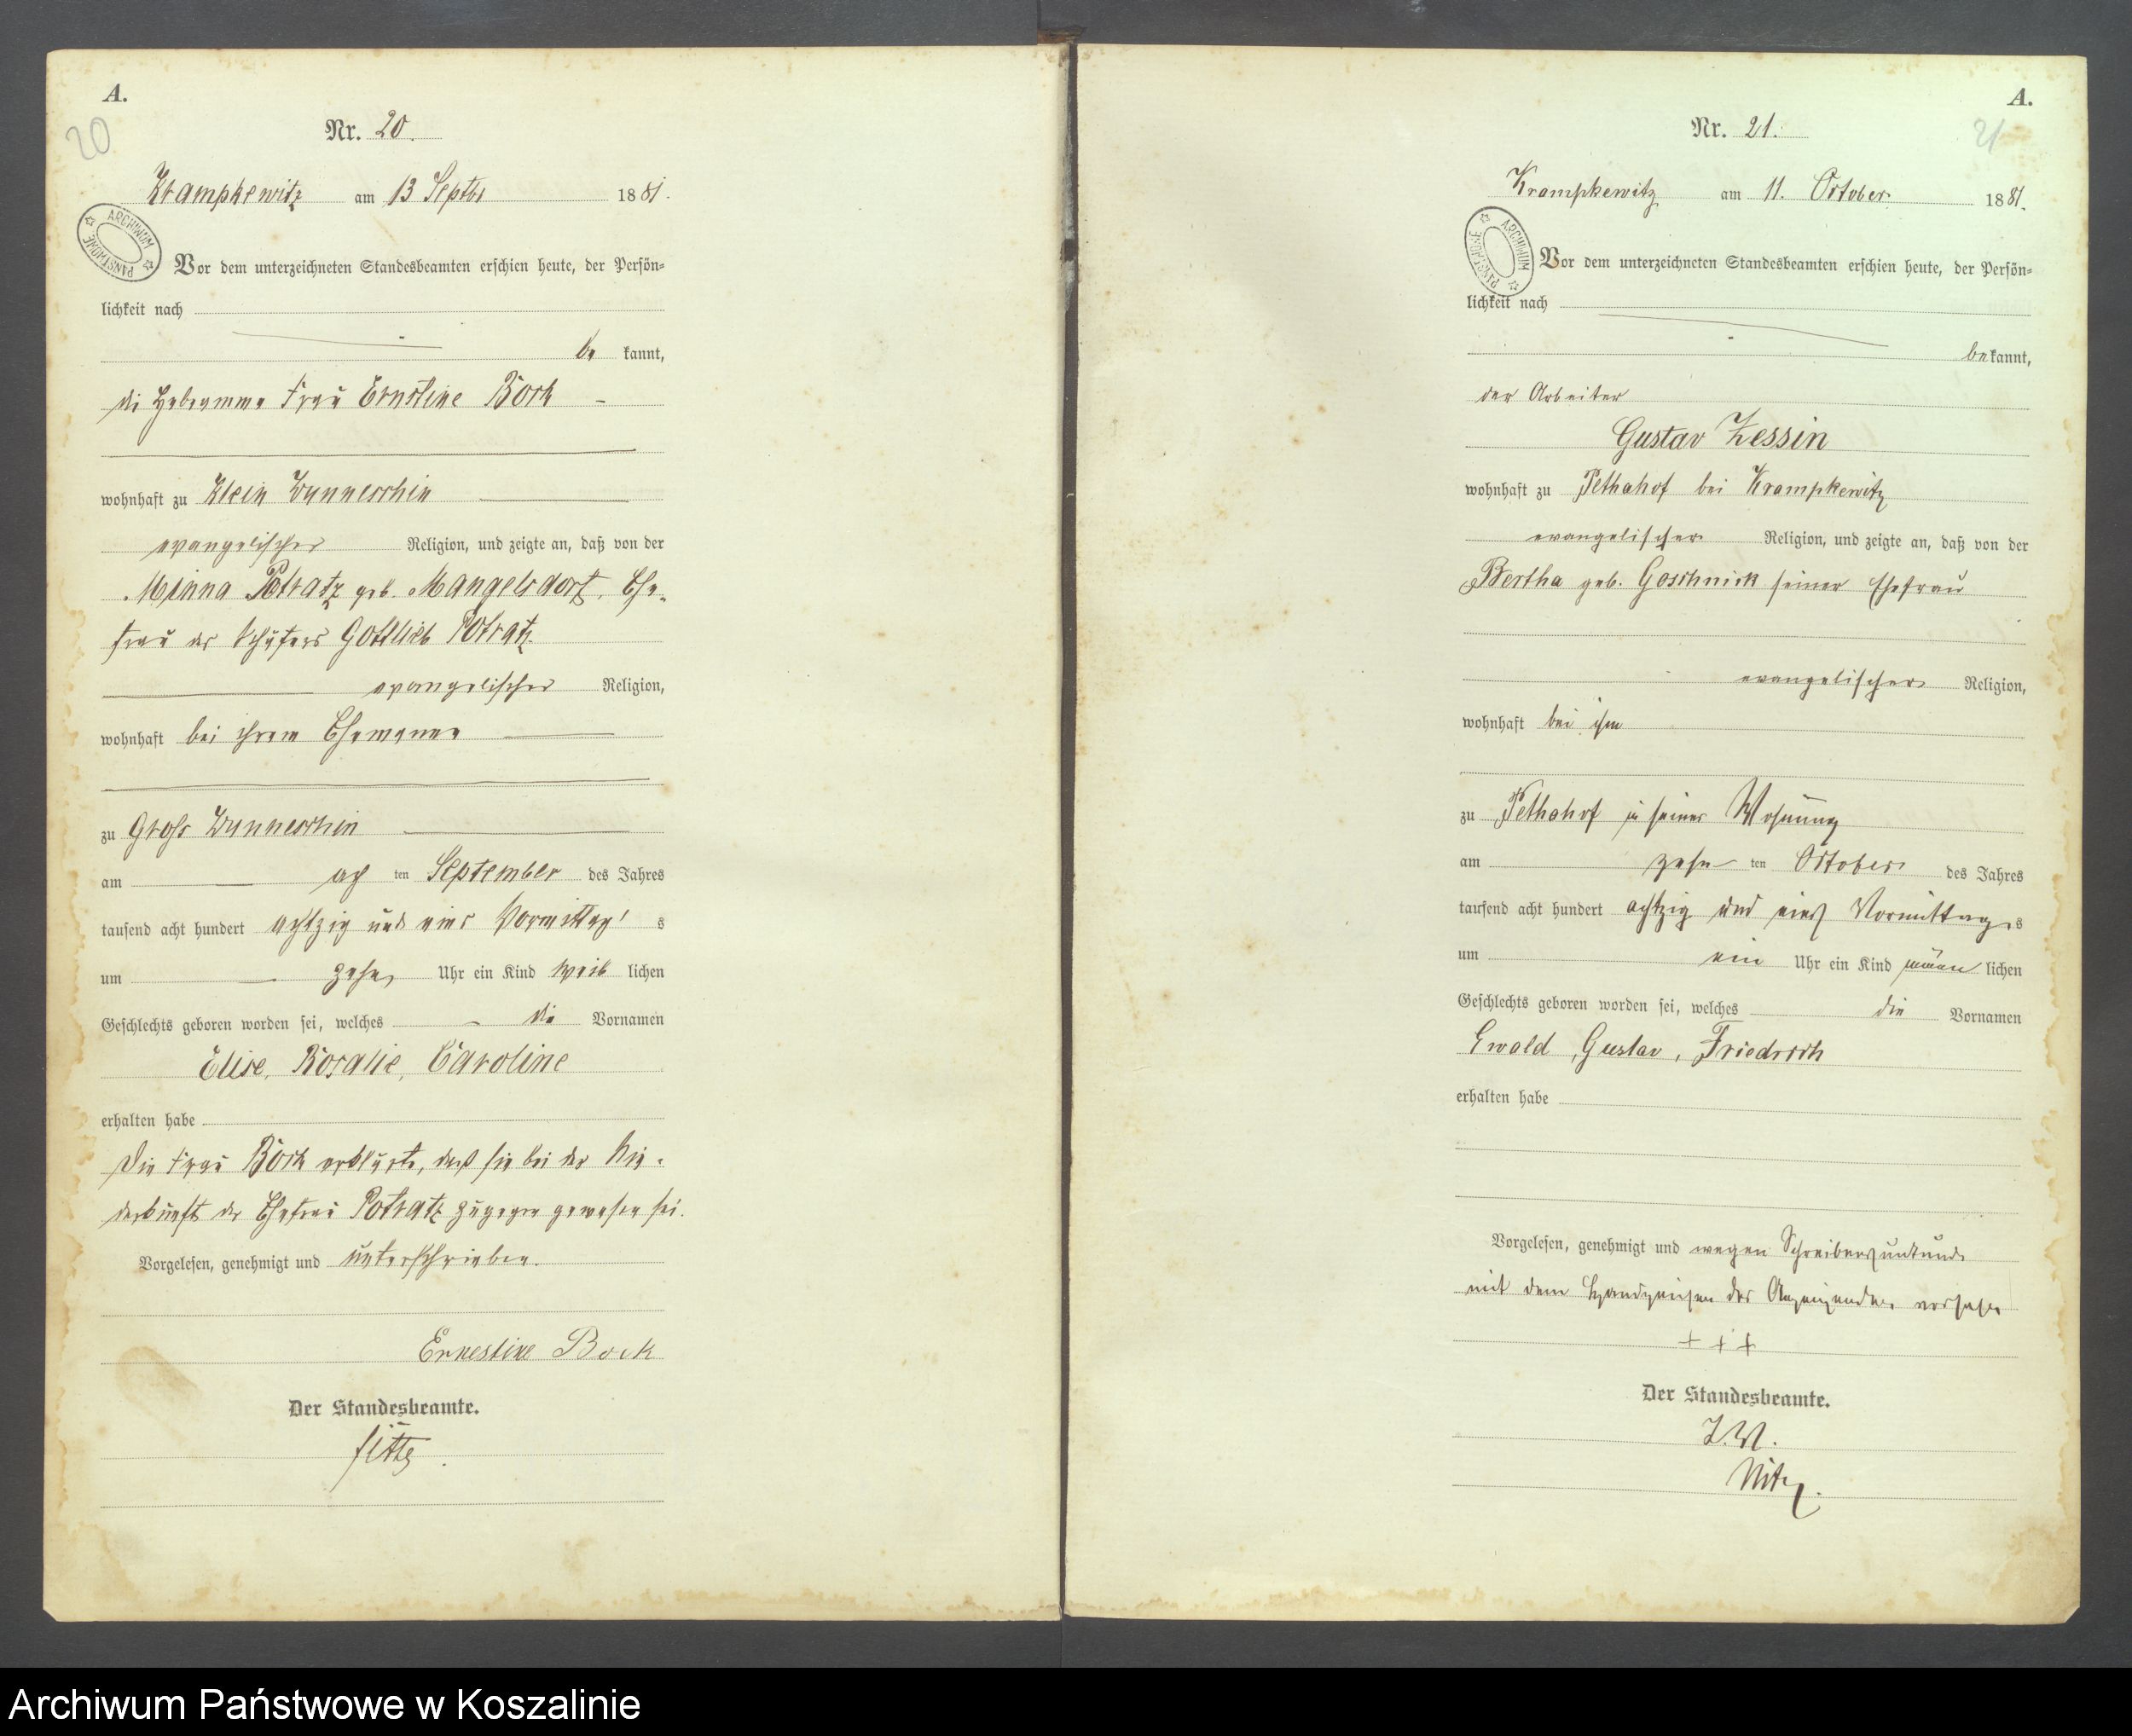 A.
20
Nr. 20.
Krampkewitz am 13 Septbr 1881.
ARCHIWUM PAŃSTWOWE
Vor dem unterzeichneten Standesbeamten erschien heute, der Persön=
lichkeit nach
be kannt,
die Hebeamme Frau Ernstine Bock
wohnhaft zu Klein Wunneschin
evangelischer Religion, und zeigte an, daß von der
Minna Potratz geb. Mangelsdorf, Ehe-
frau des Schäfers Gottlieb Potratz
evangelischer Religion,
wohnhaft bei ihrem Ehemanne
zu Gross Wunneschin
am ach ten September des Jahres
tausend acht hundert achtzig und eins Vormittag s
um zehn Uhr ein Kind weib lichen
Geschlechts geboren worden sei, welches die Vornamen
Elise, Rosalie, Caroline
erhalten habe
Die Frau Bock erklärte, daß sie bei der Nie-
derkunft der Ehefrau Potratz zugegen gewesen sei.
Vorgelesen, genehmigt und unterschrieben.
Ernestine Bock
Der Standesbeamte.
A.
21
Nr. 21.
Krampkewitz am 11. October 1881.
ARCHIWUM PAŃSTWOWE
Vor dem unterzeichneten Standesbeamten erschien heute, der Persön=
lichkeit nach
be kannt,
der Arbeiter
Gustav Zessin
wohnhaft zu Pethahof bei Krampkewitz
evangelischer Religion, und zeigte an, daß von der
Bertha geb. Goschnick seiner Ehefrau
evangelischer Religion,
wohnhaft bei ihm
zu Pethahof in seiner Wohnung
am zehn ten October des Jahres
tausend acht hundert achtzig und eins Vormittag s
um ein Uhr ein Kind männ lichen
Geschlechts geboren worden sei, welches die Vornamen
Ewald, Gustav, Friedrich
erhalten habe
Vorgelesen, genehmigt und wegen Schreibensunkunde
mit dem Handzeichen des Anzeigenden versehen
+ + +
Der Standesbeamte.
I. V.
Nitz.
Archiwum Państwowe w Koszalinie